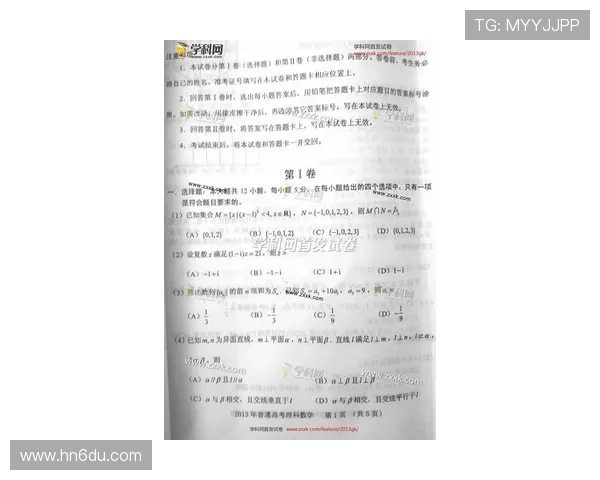 TG: MYYJJPP
学科网
学科网首发试卷
www.zxxk.com/feature/2013gk/
注意事项:
1. 本试卷分第Ⅰ卷(选择题)和第Ⅱ卷(非选择题)两部分。答卷前,考生务必
将自己的姓名、准考证号填写在本试卷和答题卡相应位置上。
2. 回答第Ⅰ卷时,选出每小题答案后,用铅笔把答题卡上对应题目的答案标号涂
黑,如需改动,用橡皮擦干净后,再选涂其它答案标号。写在本试卷上无效。
3. 回答第Ⅱ卷时,将答案写在答题卡上,写在本试卷上无效。
4. 考试结束后,将本试卷和答题卡一并交回。
第Ⅰ卷
一、选择题:本大题共 12 小题,每小题 5 分,在每小题给出的四个选项中,只有一项
是符合题目要求的。
(1)已知集合 M={x|(x-1)²<4, x∈R}, N={-1,0,1,2,3}, 则 M∩N=
(A) {0,1,2} (B) {-1,0,1,2} (C) {-1,0,2,3} (D) {0,1,2,3}
学科网首发试卷
(2)设复数 z 满足(1-i)z=2i, 则 z=
(A) -1+i (B) -1-i (C) 1+i (D) 1-i
(3)等比数列{aₙ}的前 n 项和为 Sₙ, 已知 S₃=a₂+10a₁, a₅=9, 则 a₁=
(A) 1/3 (B) -1/3 (C) 1/9 (D) -1/9
(4)已知 m,n 为异面直线, m⊥平面α, n⊥平面β. 直线 l 满足 l⊥m, l⊥n, l⊄α,
l⊄β, 则
(A) α∥β且l∥α (B) α⊥β且l⊥β
(C) α与β相交, 且交线垂直于l (D) α与β相交, 且交线平行于l
2013 年普通高考理科数学 第 1 页 (共 5 页)
学科网首发试卷 www.zxxk.com/feature/2013gk/
www.hn6du.com